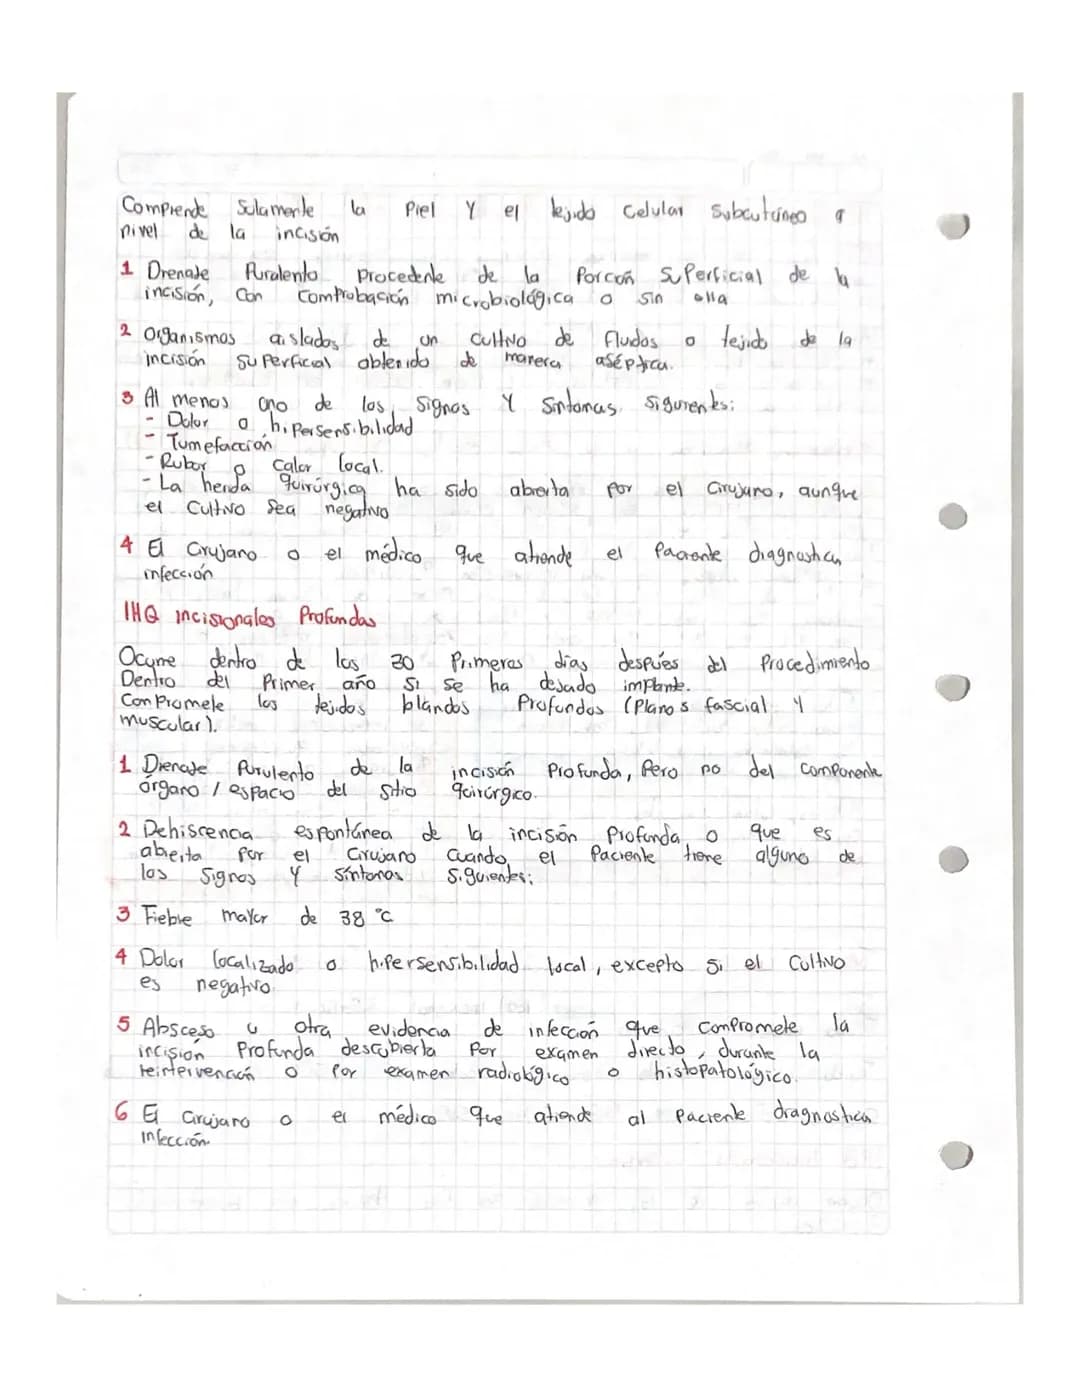 Comprende Solamente la Piel Y el tejido Celular Subcutáneo a
nivel de la incisión
1 Drenaje Purulento Procedente de la Porción Superficial de la
incisión, Con Comprobación microbiológica o sin ella
2 Organismos aislados de un cultivo de fluidos o tejido de la
incisión superficial obtenido de manera aséptica.
3 Al menos uno de los Signos Y Sintomas Siguientes:
- Dolor o hipersensibilidad
- Tumefacción
- Rubor o Calor local.
- La herida quirúrgica ha sido abierta por el Cirujano, aunque
el Cultivo Sea negativo
4 El Cirujano o el médico que atiende el Paciente diagnostica
infección
IHQ incisionales Profundas
Ocurre dentro de los 30 Primeros días después del Procedimiento
Dentro del Primer año Si Se ha dejado implante.
Compromete los tejidos blandos Profundos (Planos fascial Y
muscular).
1 Drenaje Purulento de la incisión Profunda, Pero no del Componente
órgano / espacio del Sitio quirúrgico.
2 Dehiscencia espontánea de la incisión Profunda o que es
abierta Por el Cirujano Cuando el Paciente tiene alguno de
los Signos Y Síntomas Siguientes:
3 Fiebre mayor de 38 °C
4 Dolor localizado o hipersensibilidad local, excepto Si el Cultivo
es negativo
5 Absceso u otra evidencia de infección que Compromete la
incisión Profunda descubierta Por examen directo, durante la
reintervención o Por examen radiológico o histopatológico.
6 El Cirujano o el médico que atiende al Paciente diagnostica
Infección.